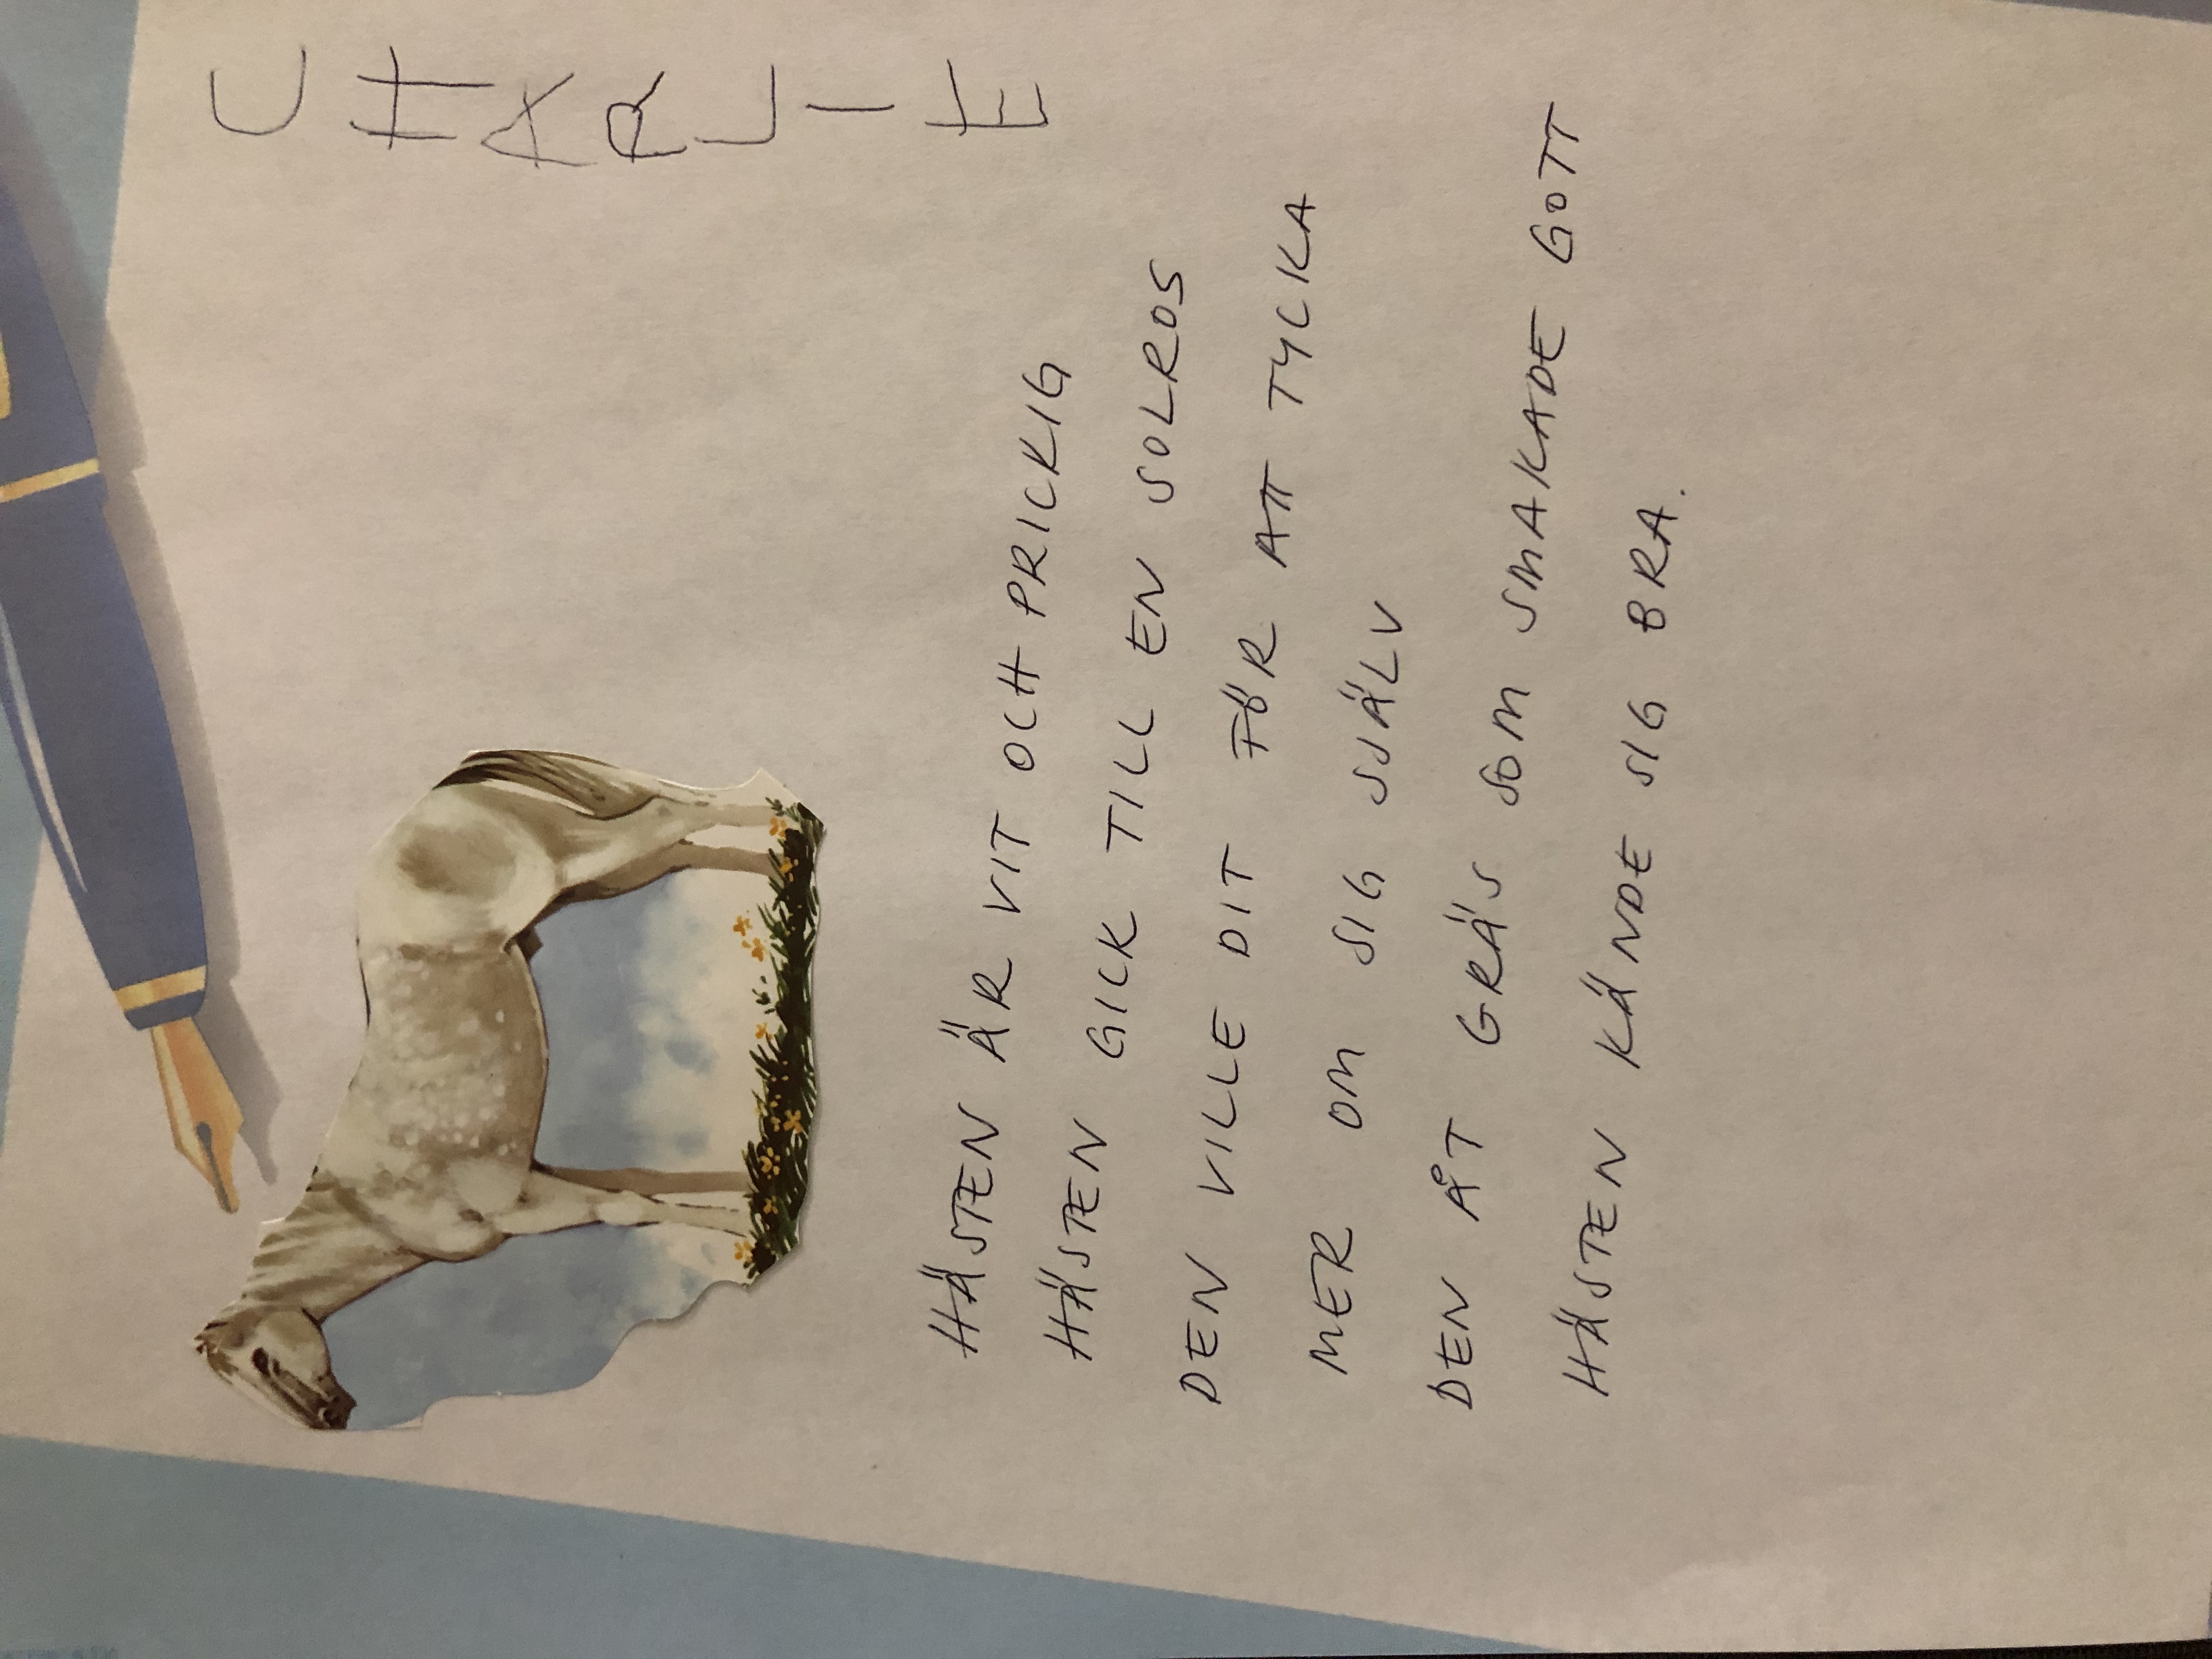 CHARLIE
HÄSTEN ÄR VIT OCH PRICKIG
HÄSTEN GICK TILL EN SOLROS
DEN VILLE DIT FÖR ATT TYCKA
MER OM SIG SJÄLV
DEN ÅT GRÄS SOM SMAKADE GOTT
HÄSTEN KÄNDE SIG BRA.